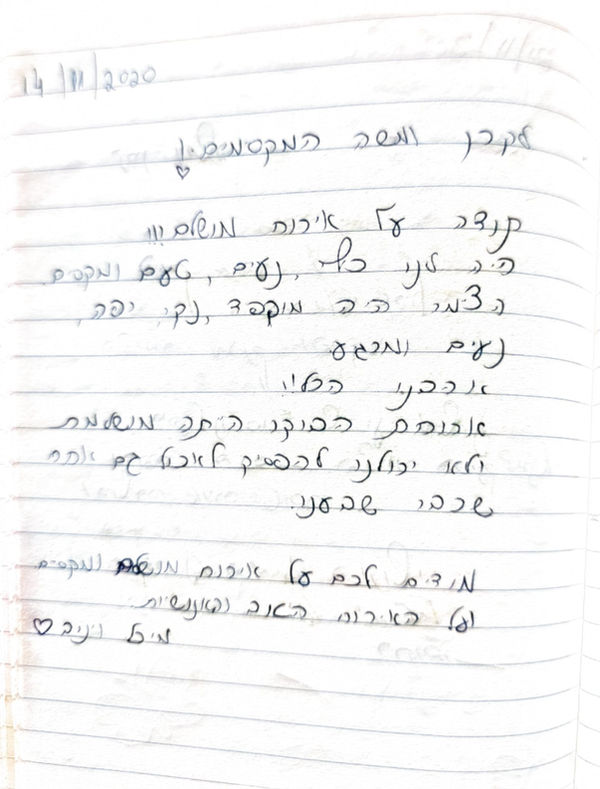 14/11/2020
לקרן ומשה המקסימים!
תודה על אירוח מושלם!!!
היה לנו כיף, נעים, טעים ומקסים.
הצימר היה מוקפד, נקי, יפה,
נעים ומרגיע
אהבנו הכל!!
ארוחת הבוקר הייתה מושלמת
ולא יכולנו להפסיק לאכול גם אחרי
שכבר שבענו.
מודים לכם על אירוח מושלם ומקסים
ועל האירוח הטוב והאנושיות.
מיכל ויניב ♡